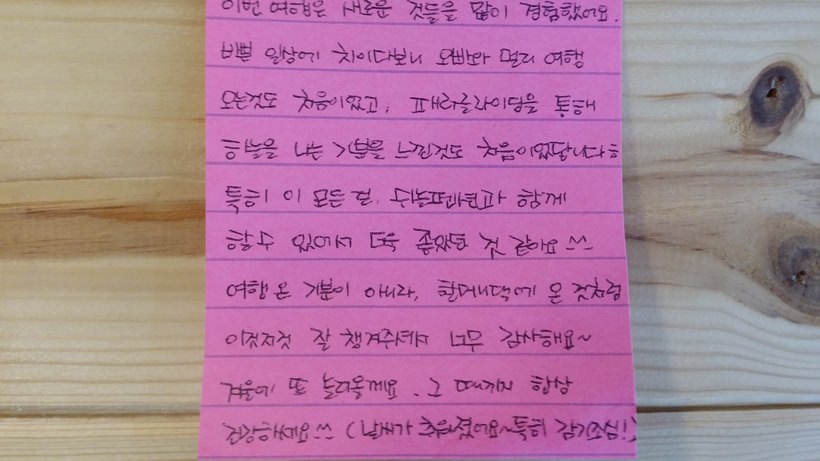 이번 여행은 새로운 것들을 많이 경험했어요.
바쁜 일상에 치이다보니 오빠와 멀리 여행
오는것도 처음이었고, 패러글라이딩을 통해
하늘을 나는 기분을 느낀것도 처음이었답니다ㅎ
특히 이 모든 걸, 함께
할 수 있어서 더욱 좋았던 것 같아요 ^^
여행 온 기분이 아니라, 할머니댁에 온 것처럼
이것저것 잘 챙겨주셔서 너무 감사해요~
겨울에 또 놀러올게요. 그 때까지 항상
건강하세요^^ (날씨가 추워졌어요~특히 감기조심!)